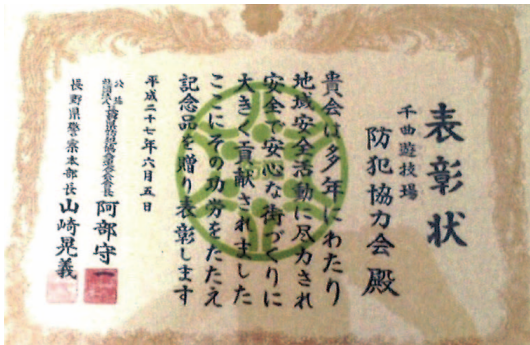 表彰状
千曲遊技場
防犯協力会殿
貴会は多年にわたり
地域安全活動に尽力され
安全で安心な街づくりに
大きく貢献されました
ここにその功労をたたえ
記念品を贈り表彰します
平成二十七年六月五日
公益
社団法人長野県防犯協会連合会長 阿部守一
長野県警察本部長 山崎晃義